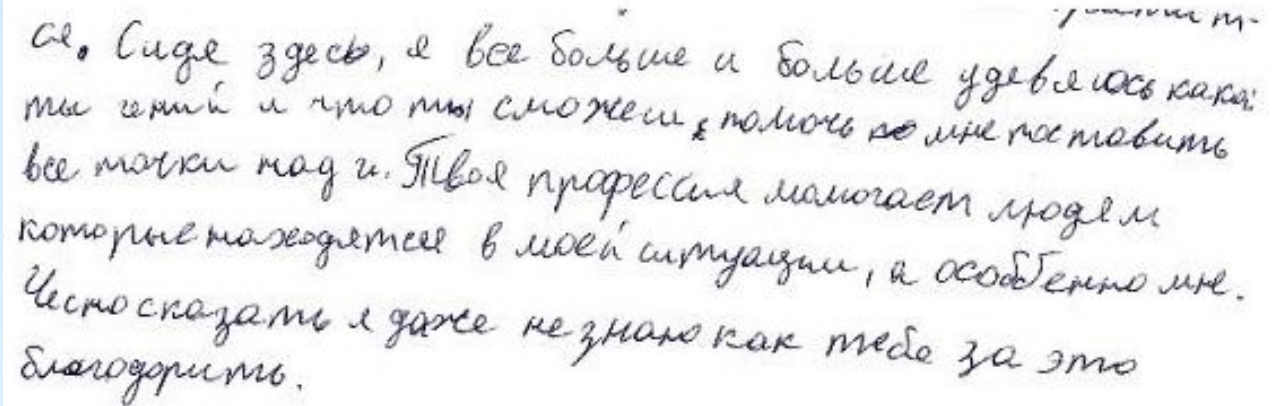 ся. Сидя здесь, я все больше и больше удевляюсь какой
ты гений и что ты сможеш помочь мне поставить
все точки над и. Твоя профессия помогает людям
которые находятся в моей ситуации, а особбенно мне.
Чесно сказать я даже не знаю как тебе за это
благодорить.